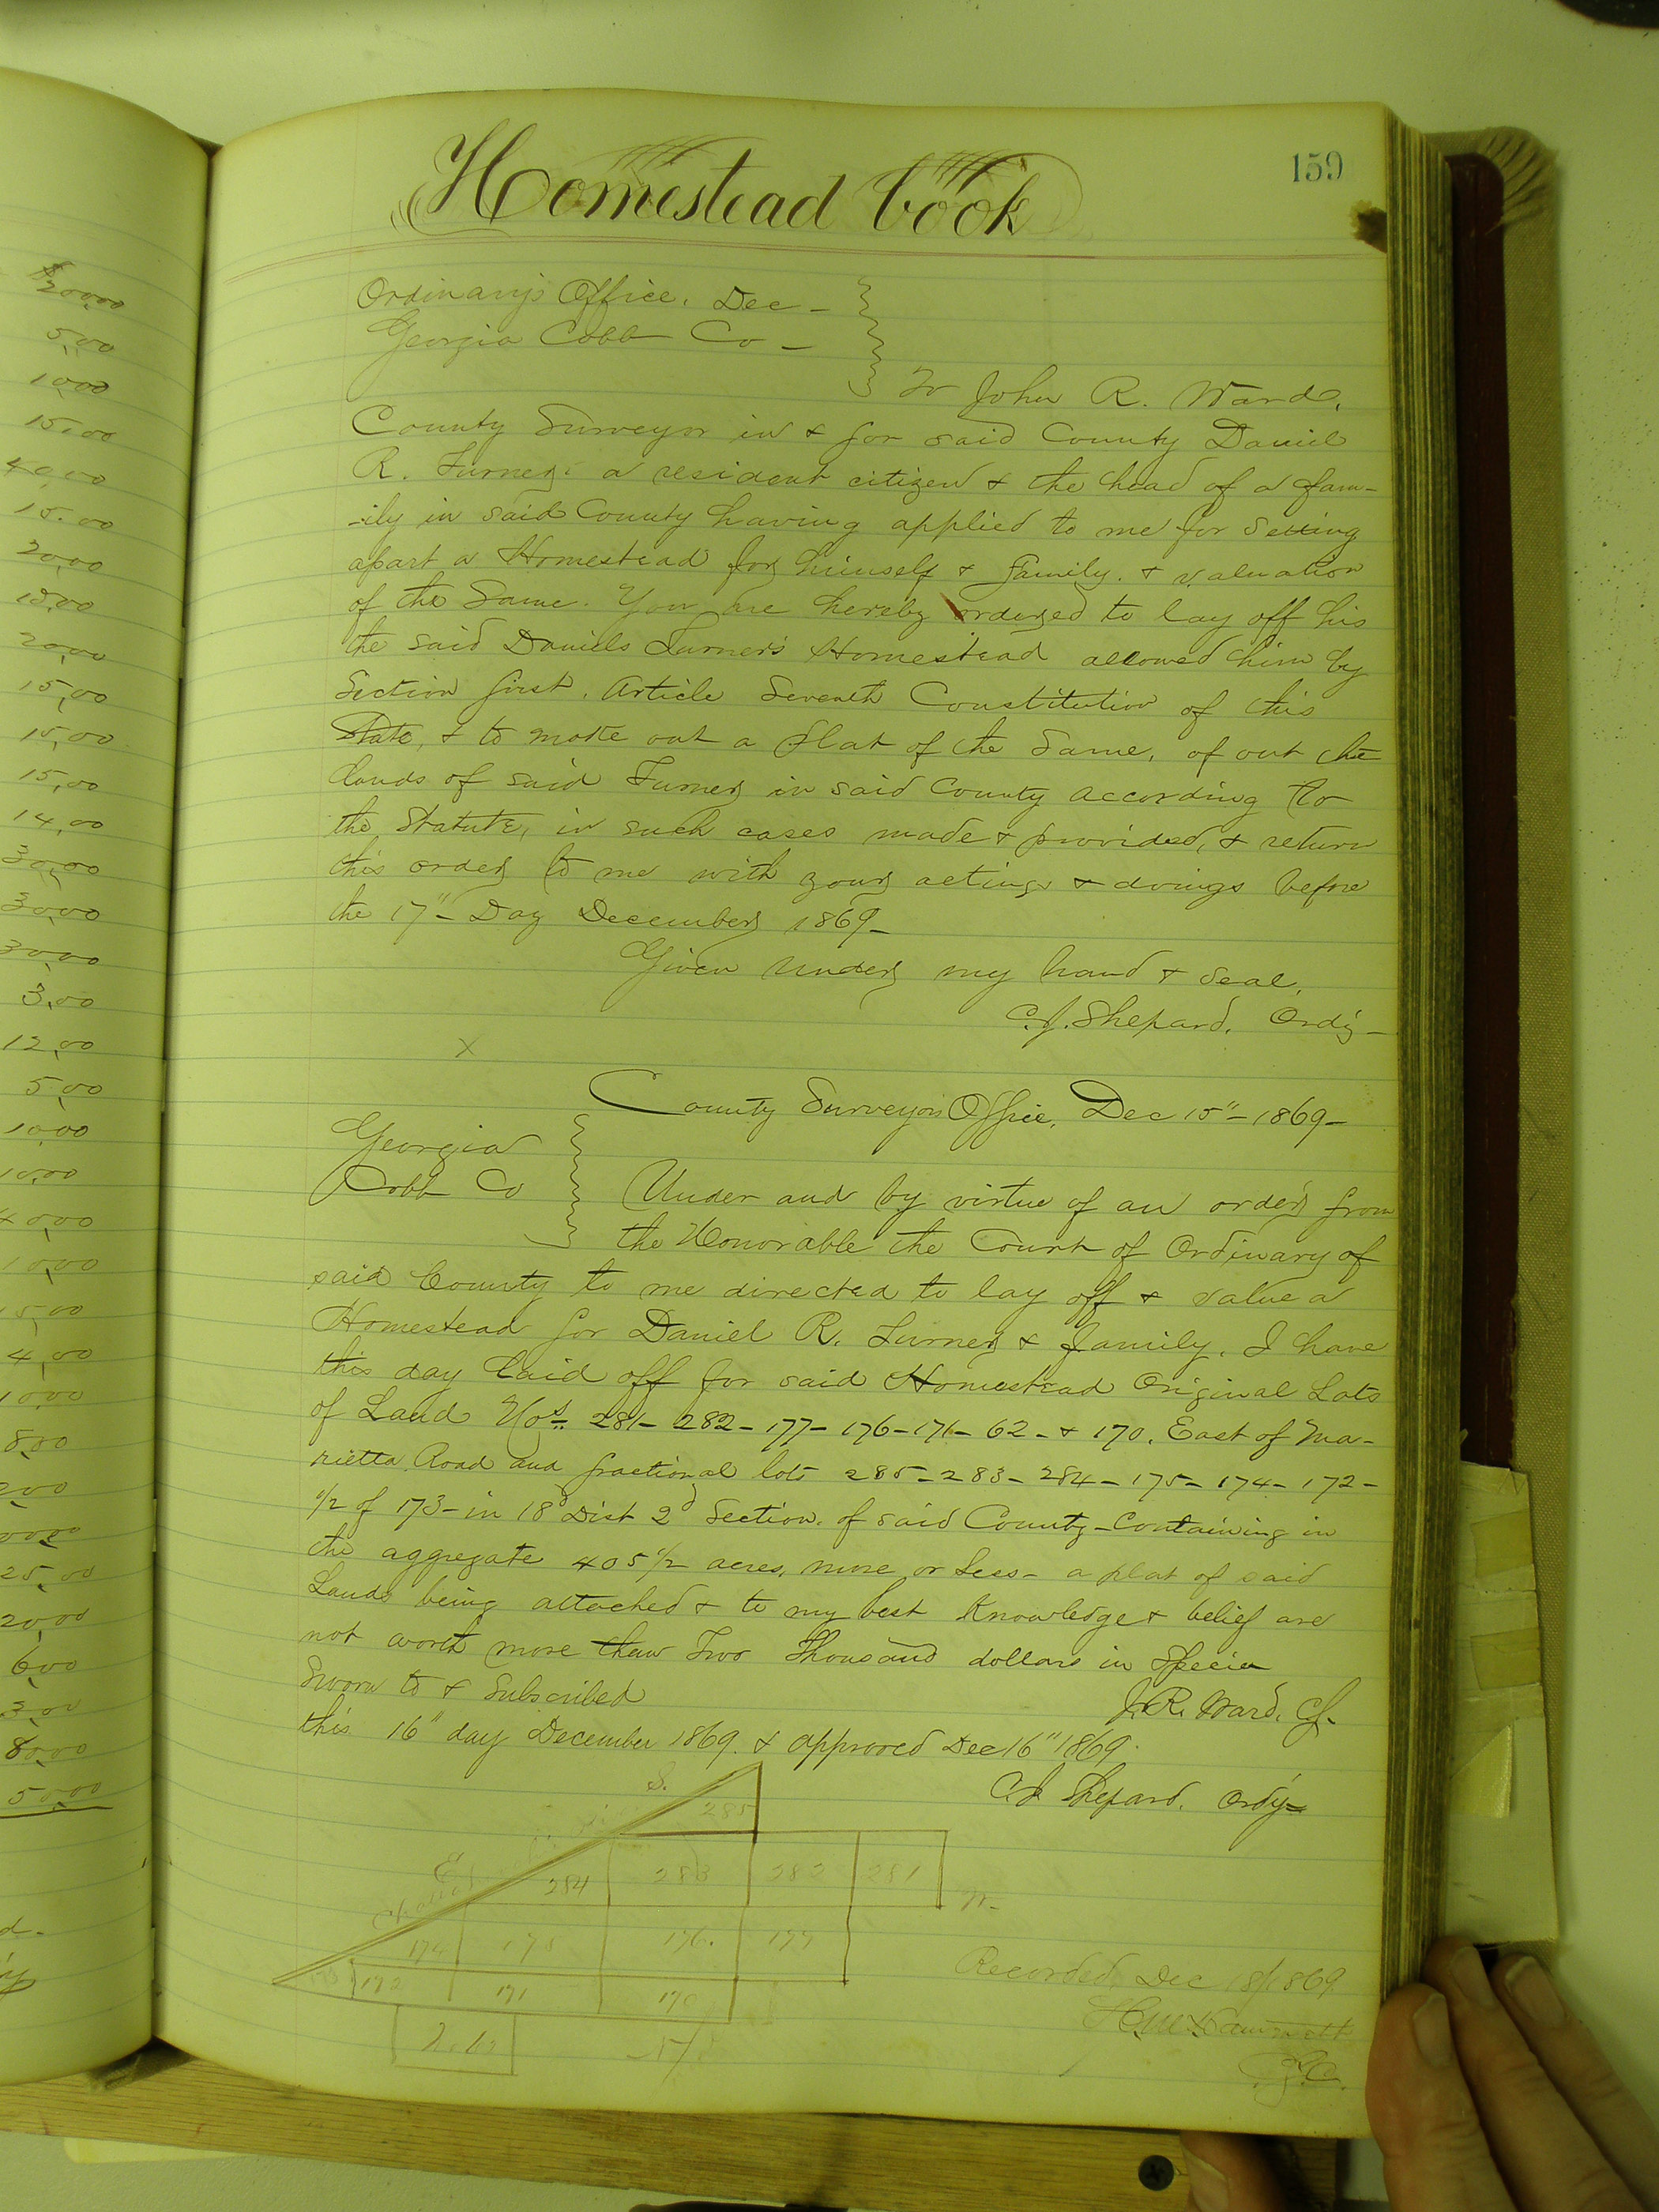 159
Homestead book
Ordinary's Office, Dec -
Georgia Cobb Co -
To John R. Ward,
County Surveyor in & for said County Daniel
R. Turner a resident citizen & the head of a fam-
-ily in said County having applied to me for setting
apart a Homestead for himself & family. & valuation
of the Same. You are hereby ordered to lay off his
the said Daniels Turner's Homestead allowed him by
Section first. Article Seventh Constitution of this
State, & to make out a plat of the Same, of out the
lands of said Turner in said County according to
the Statute, in such cases made & provided, & return
this order to me with your actings & doings before
the 17" Day December 1869 -
Given under my hand & seal,
C.J. Shepard, Ordy -
x
County Surveyors Office, Dec 15" - 1869 -
Georgia
Cobb Co
Under and by virtue of an order from
the Honorable the Court of Ordinary of
said County to me directed to lay off & value a
Homestead for Daniel R. Turner & family, I have
this day laid off for said Homestead Original Lots
of Land Nos. 281 - 282 - 177 - 176 - 171 - 62 - & 170. East of Ma-
rietta Road and fractional lots 285 - 283 - 284 - 175 - 174 - 172 -
1/2 of 173 - in 18d Dist 2d Section. of said County - Containing in
the aggregate 405 1/2 acres, more or less - a plat of said
Lands being attached & to my best Knowledge & belief are
not worth more than Two Thousand dollars in Specie
Sworn to & Subscribed
J. R. Ward, C.S.
this 16" day December 1869. & approved Dec 16" 1869.
C J Shepard. Ordy -
S.
285
E
284 283 282 281
W.
174 175 176. 177
172 171 170
N.
Recorded, Dec 18/1869
$20000
5,00
10,00
15,00
40,00
15.00
20,00
15,00
20,00
15,00
15,00
15,00
14,00
30,00
30,00
30,00
3,00
12,00
5,00
10,00
10,00
40,00
10,00
15,00
4,00
10,00
8,00
25,00
20,00
6,00
3,00
80,00
50,00